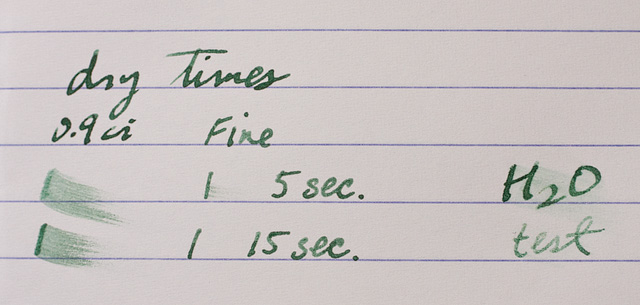 dry times
0.9 ci Fine
1 5 sec. H₂O
1 15 sec. test